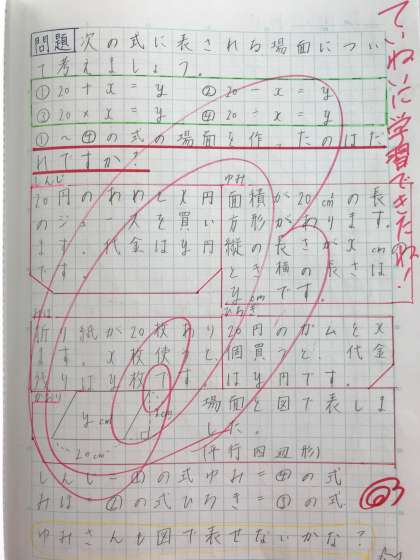 問題 次の式に表される場面につい
て考えましょう。
① 20 + x = y ② 20 − x = y
③ 20 × x = y ④ 20 ÷ x = y
①〜④の式の場面を作ったのはだ
れですか?
しんじ
20円のあめとx円
のジュースを買い
ます。代金はy円
です。
ゆみ
面積が20cm²の長
方形があります。
縦の長さがxcm
とき横の長さは
ycmです。
みほ
折り紙が20枚あり
ます。x枚使うと、
残りはy枚です。
ひろき
20円のガムをx
個買うと、代金
はy円です。
ycm
20cm
場面を図で表しま
した。
(平行四辺形)
しんじ=①の式 ゆみ=④の式
みほ=②の式 ひろき=③の式
ゆみさんも図で表せないかな?
ていねいに学習できたね!